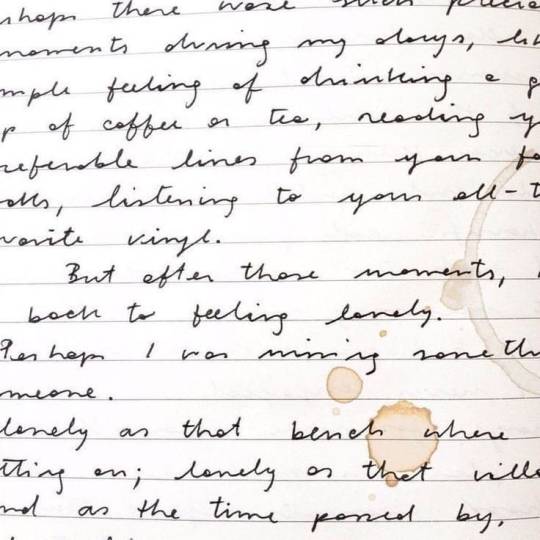 rhaps there were such precio
moments during my days, li
mple feeling of drinking a g
p of coffee or tea, reading y
referable lines from your fa
listening to your all-t
vorite vinyl.
But after those moments,
back to feeling lonely.
Perhaps I was missing someth
meone.
lonely as that bench where
tting on; lonely as that villa
nd as the time passed by,